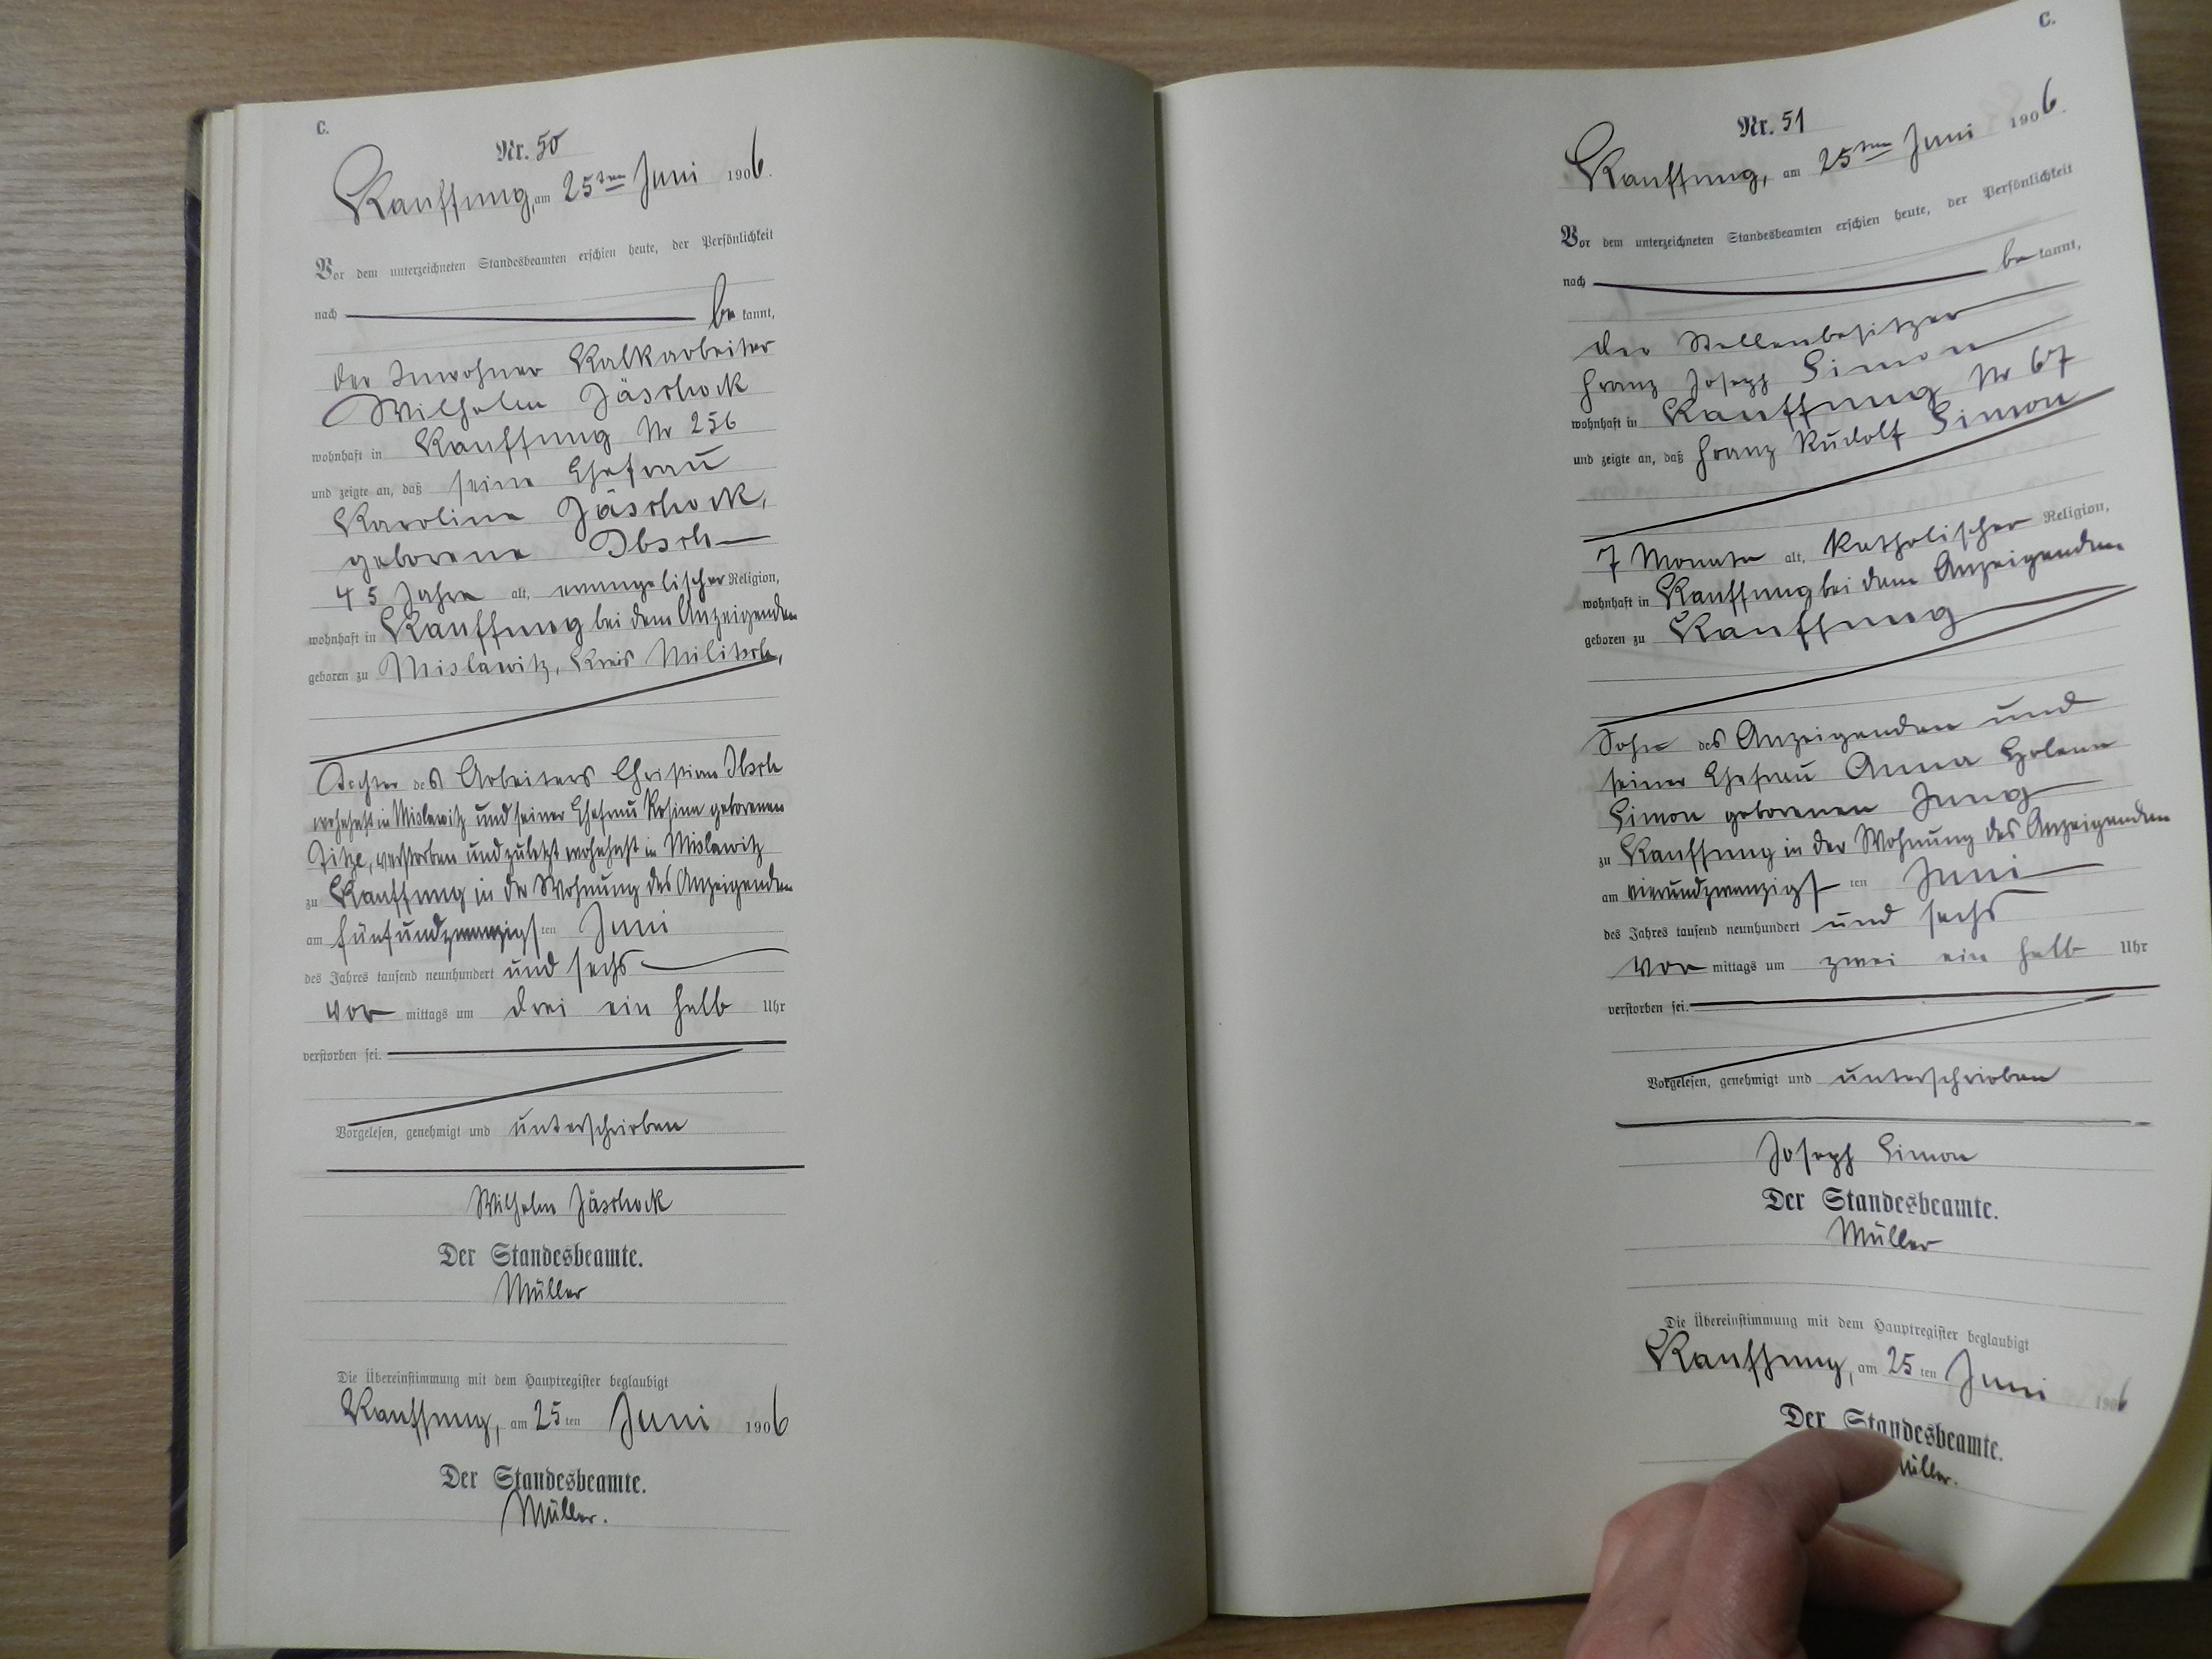 C.
Nr. 50
Kauffung, am 25ten Juni 1906.
Vor dem unterzeichneten Standesbeamten erschien heute, der Persönlichkeit
nach be kannt,
der Inwohner Kalkarbeiter
Wilhelm Jäschock
wohnhaft in Kauffung Nr 256
und zeigte an, daß seine Ehefrau
Karoline Jäschock,
geborene Ibsch
45 Jahre alt, evangelischer Religion,
wohnhaft in Kauffung bei dem Anzeigenden
geboren zu Mislawitz, Kreis Militsch,
Tochter des Arbeiters Christian Ibsch
wohnhaft in Mislawitz und seiner Ehefrau Rosina geborenen
Titze, verstorben und zuletzt wohnhaft in Mislawitz
zu Kauffung in der Wohnung des Anzeigenden
am fünfundzwanzigsten Juni
des Jahres tausend neunhundert und sechs
vor mittags um drei ein halb Uhr
verstorben sei.
Vorgelesen, genehmigt und unterschrieben
Wilhelm Jäschock
Der Standesbeamte.
Müller
Die Übereinstimmung mit dem Hauptregister beglaubigt
Kauffung, am 25 ten Juni 1906
Der Standesbeamte.
Müller.
C.
Nr. 51
Kauffung, am 25ten Juni 1906.
Vor dem unterzeichneten Standesbeamten erschien heute, der Persönlichkeit
nach be kannt,
der Stellenbesitzer
Franz Joseph Simon
wohnhaft in Kauffung Nr 67
und zeigte an, daß Franz Rudolf Simon
7 Monate alt, katholischer Religion,
wohnhaft in Kauffung bei dem Anzeigenden
geboren zu Kauffung
Sohn des Anzeigenden und
seiner Ehefrau Anna Helene
Simon geborenen Jung
zu Kauffung in der Wohnung des Anzeigenden
am vierundzwanzigsten Juni
des Jahres tausend neunhundert und sechs
Vor mittags um zwei ein halb Uhr
verstorben sei.
Vorgelesen, genehmigt und unterschrieben
Joseph Simon
Der Standesbeamte.
Müller
Die Übereinstimmung mit dem Hauptregister beglaubigt
Kauffung, am 25 ten Juni 1906
Der Standesbeamte.
Müller.